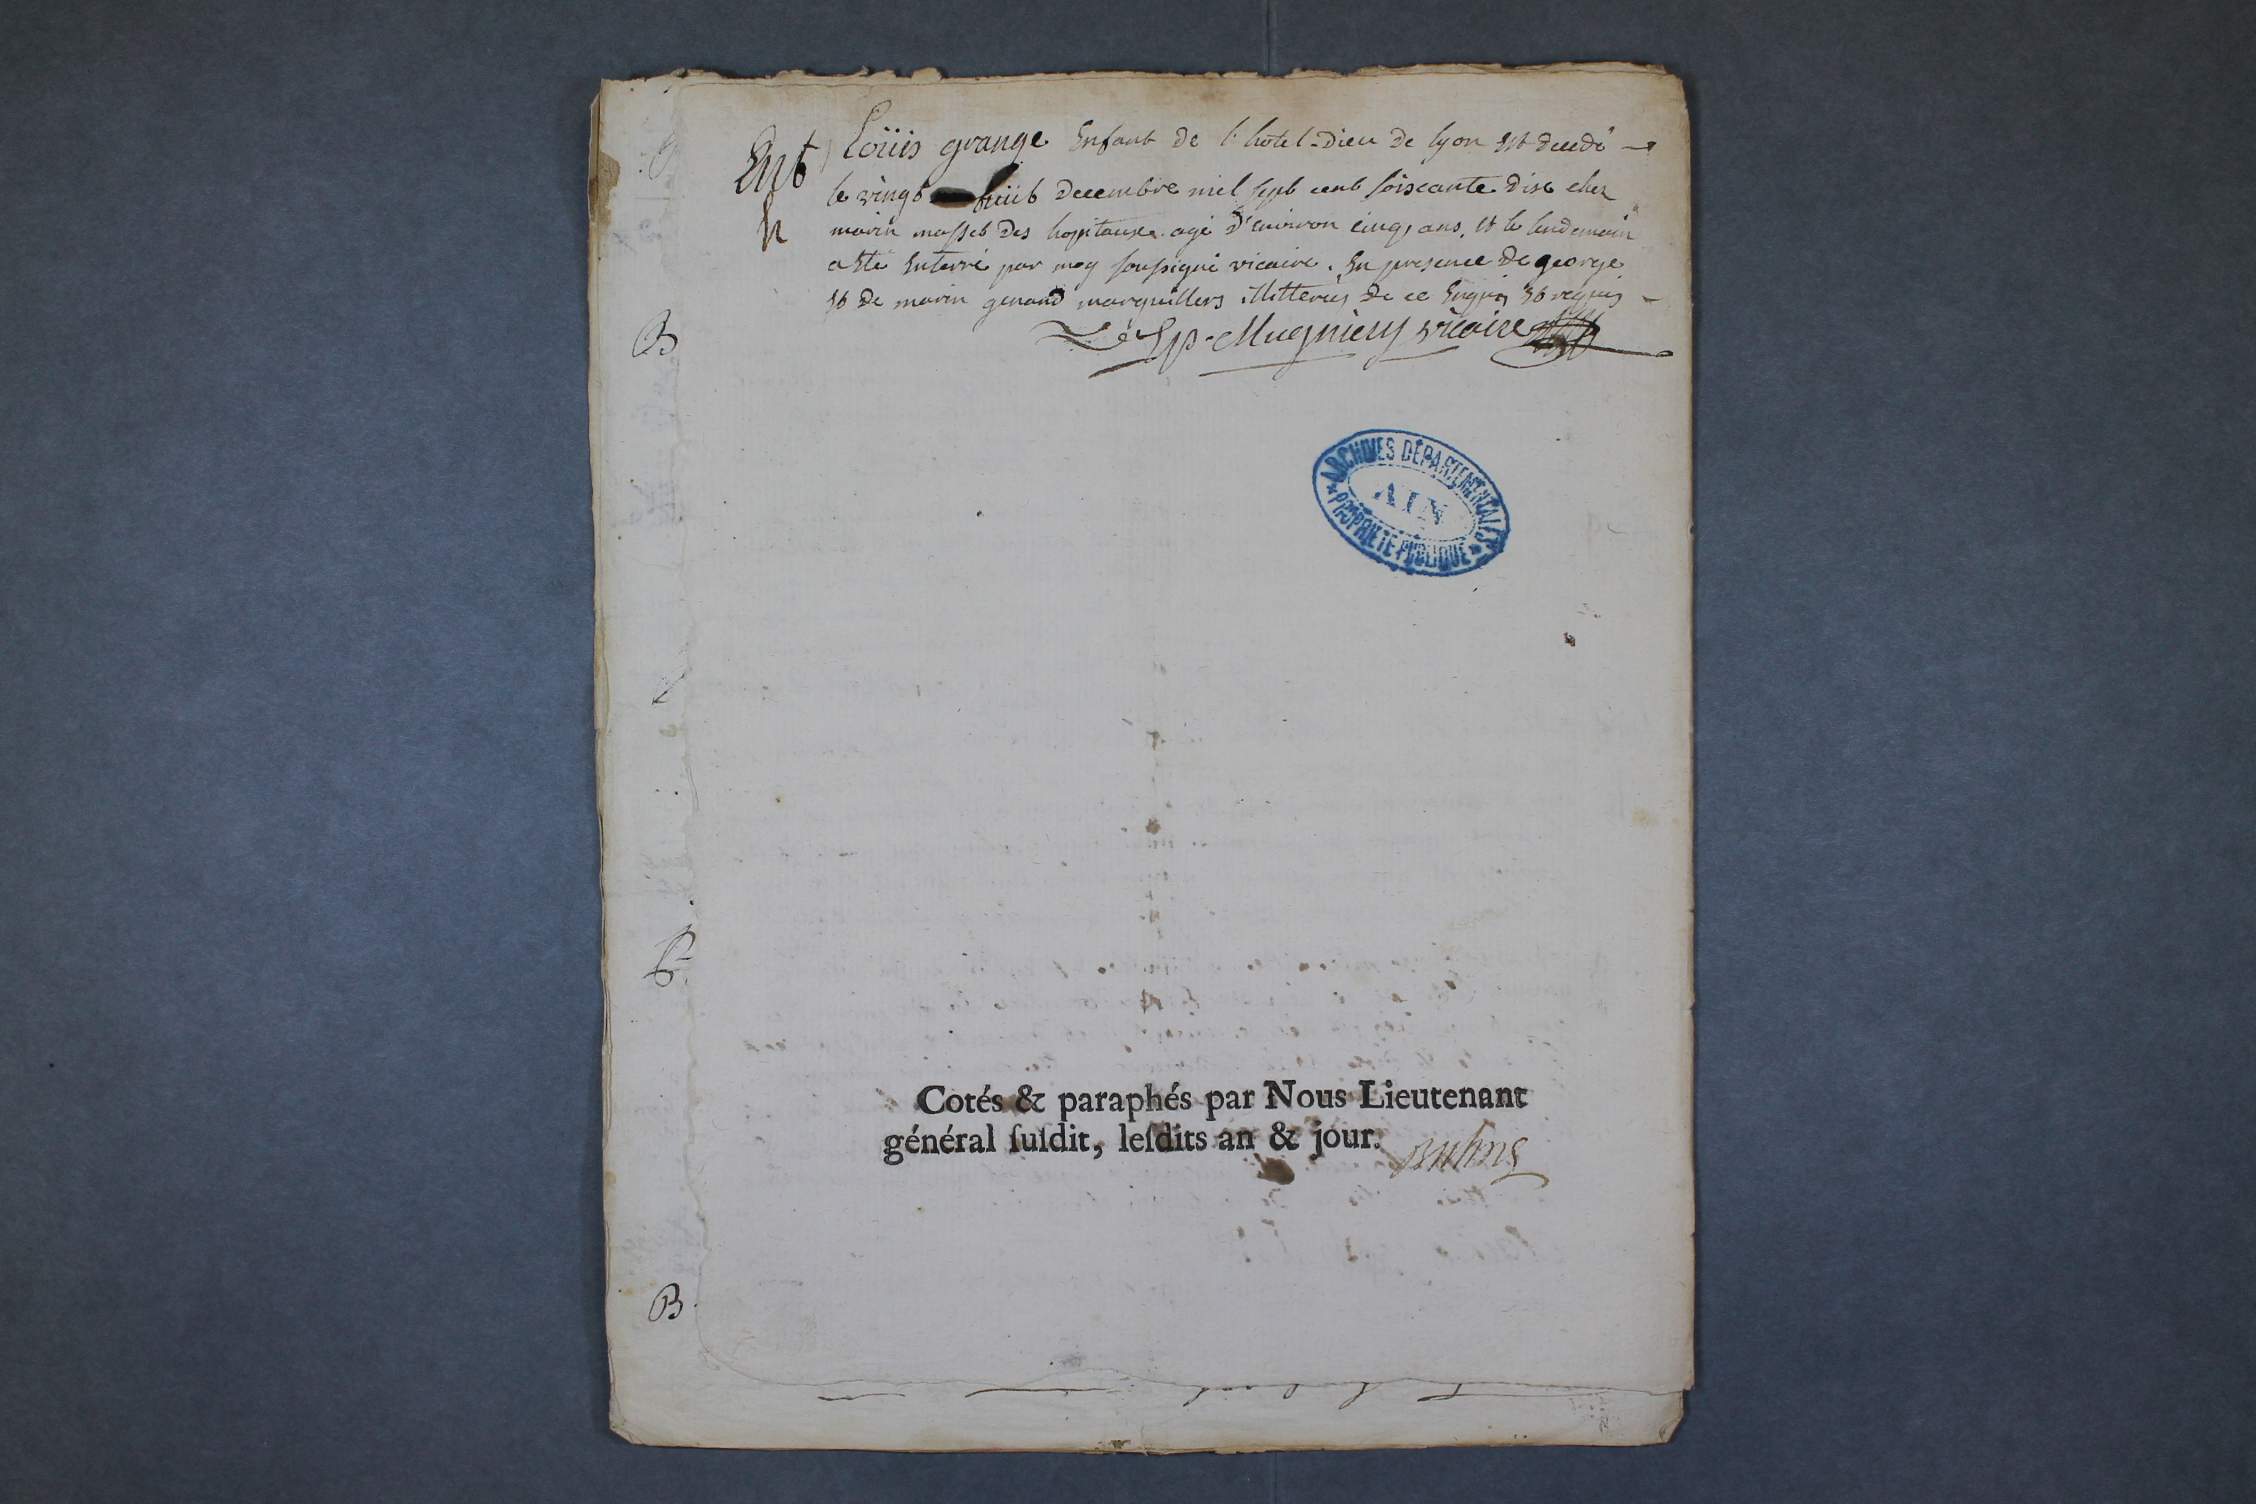 Ent
Loüis grange Enfant de l'hôtel-Dieu de lyon Est decedé
le vingt huit decembre mil sept cent soiscante disc chez
marin masset des hopitaux. agé d'environ cinq ans. Et le lendemain
a Eté Enterré par moy soussigné vicaire. En presence de george
Et de marin genand marguilliers illitterés de ce Enquis Et requis
vicaire
B
ARCHIVES DÉPARTEMENTALES
AIN
PROPRIÉTÉ PUBLIQUE
Cotés & paraphés par Nous Lieutenant
général ſuſdit, leſdits an & jour.
B